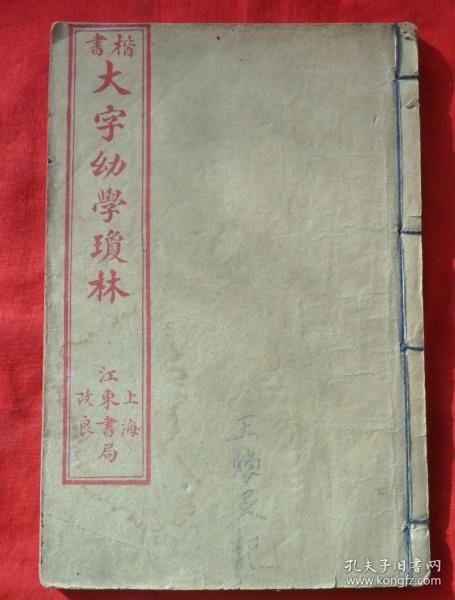 楷書
大字幼學瓊林
上海
江東書局
改良
孔夫子旧书网
www.kongfz.com